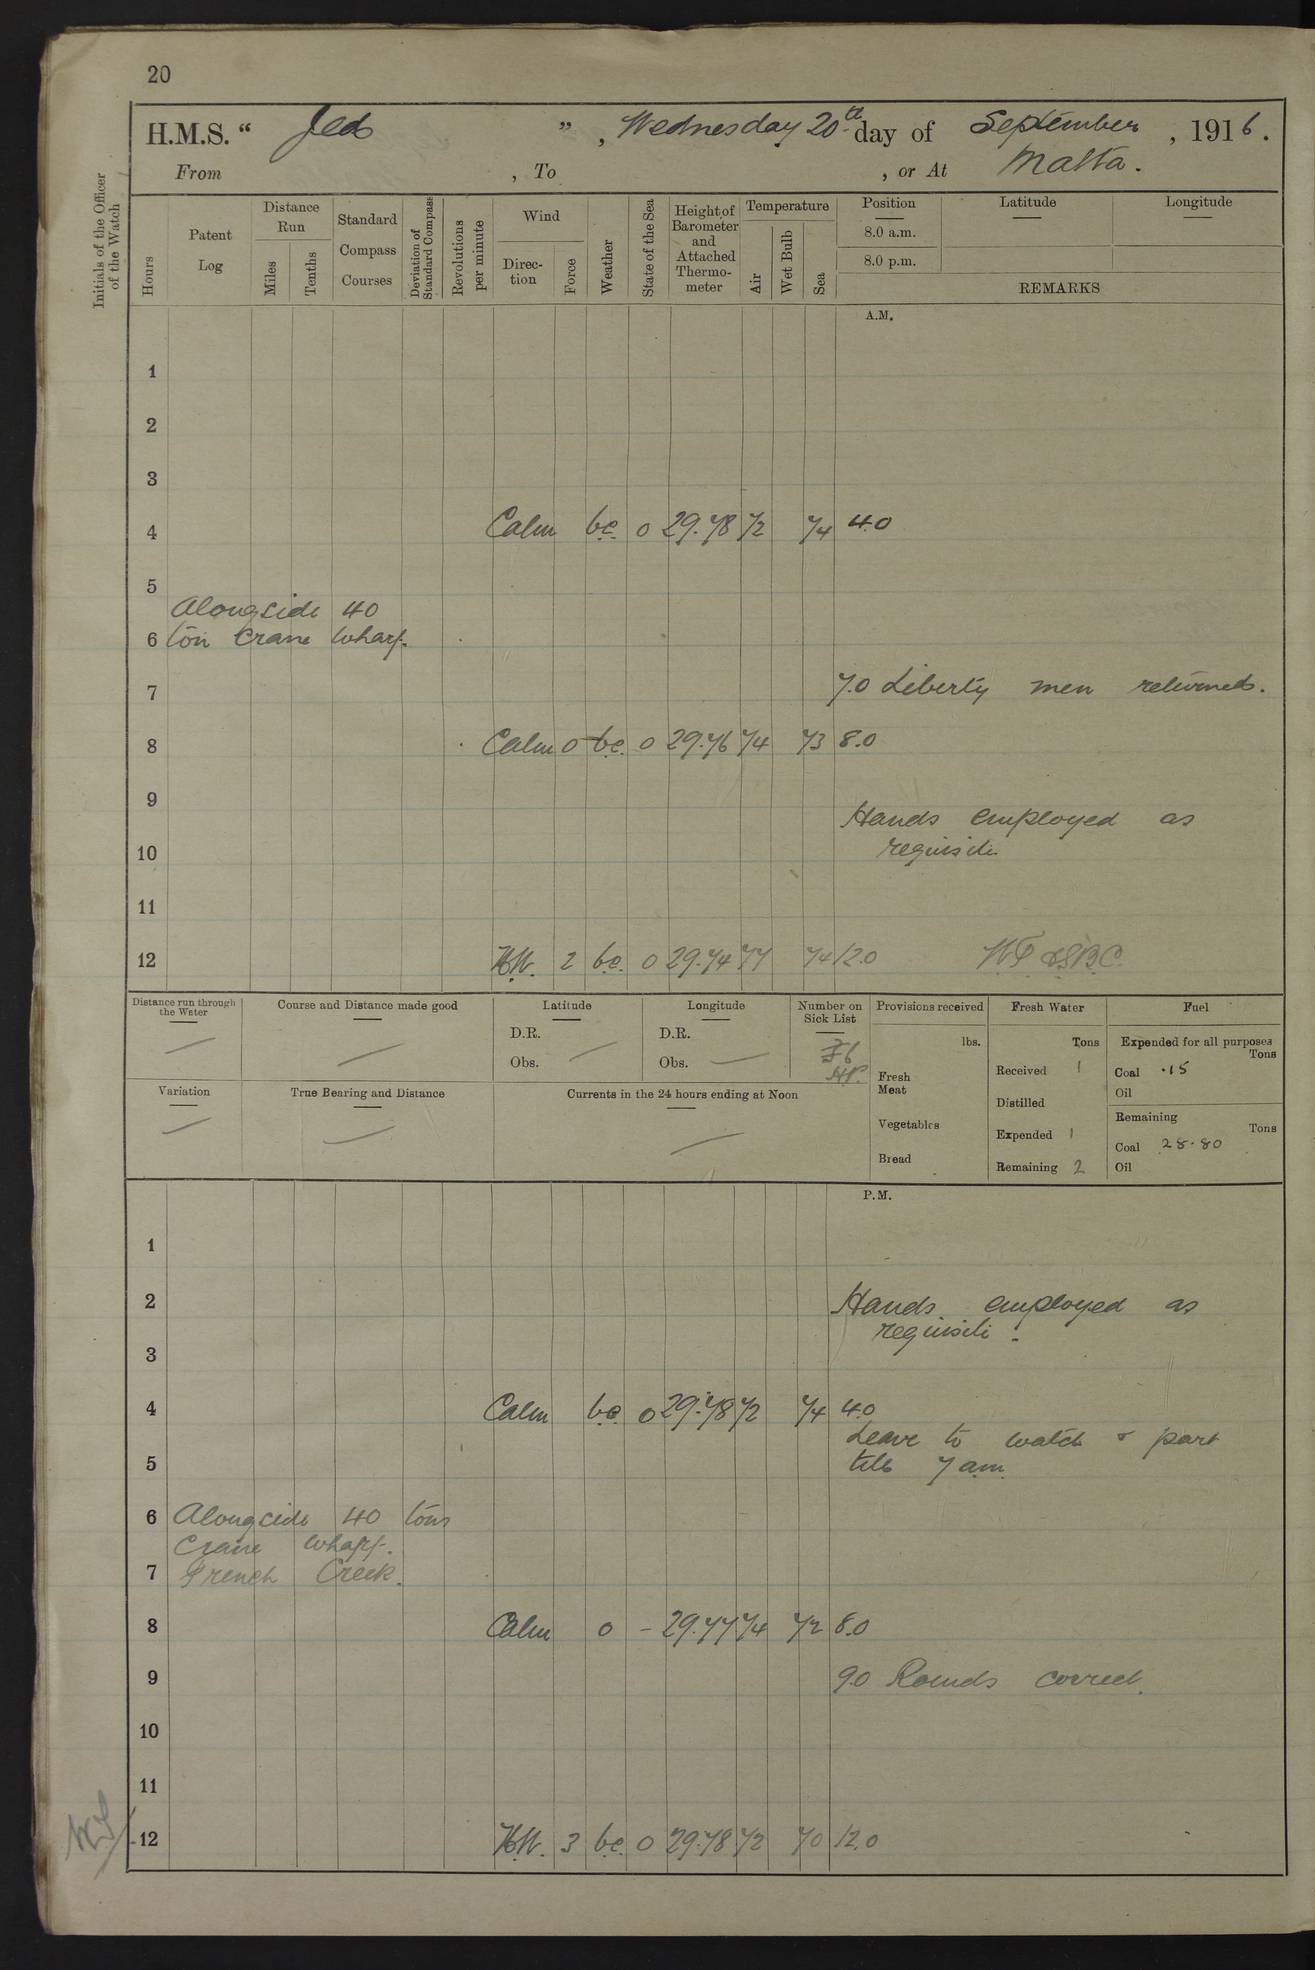 20
H.M.S. “ Jed ” , Wednesday 20th day of September , 1916.
From , To , or At Malta.
Initials of the Officer of the Watch
Hours
Patent Log
Distance Run
Miles
Tenths
Standard Compass Courses
Deviation of Standard Compass
Revolutions per minute
Wind
Direc-tion
Force
Weather
State of the Sea
Height of Barometer and Attached Thermo-meter
Temperature
Air
Wet Bulb
Sea
Position
8.0 a.m.
8.0 p.m.
Latitude
Longitude
REMARKS
A.M.
1
2
3
4 Calm bc. 0 29.78 72 74 4.0
5
Alongside 40
6 ton Crane Wharf.
7 7.0 Liberty men returned.
8 Calm 0 bc. 0 29.76 74 73 8.0
9
Hands employed as
10 requisite.
11
12 2 bc. 0 29.74 77 74 12.0
Distance run through the Water
Course and Distance made good
Latitude
D.R.
Obs.
Longitude
D.R.
Obs.
Number on Sick List
6
Provisions received
lbs.
Fresh Meat
Vegetables
Bread
Fresh Water
Tons
Received 1
Distilled
Expended 1
Remaining 2
Fuel
Expended for all purposes
Tons
Coal .15
Oil
Remaining
Tons
Coal 28.80
Oil
Variation
True Bearing and Distance
Currents in the 24 hours ending at Noon
P.M.
1
2 Hands employed as
requisite.
3
4 Calm bc. 0 29.78 72 74 4.0
Leave to watch & part
5 till 7 am.
6 Alongside 40 tons
Crane Wharf.
7 French Creek.
8 Calm 0 – 29.77 74 72 8.0
9 9.0 Rounds correct.
10
11
12 3 bc. 0 29.78 72 70 12.0